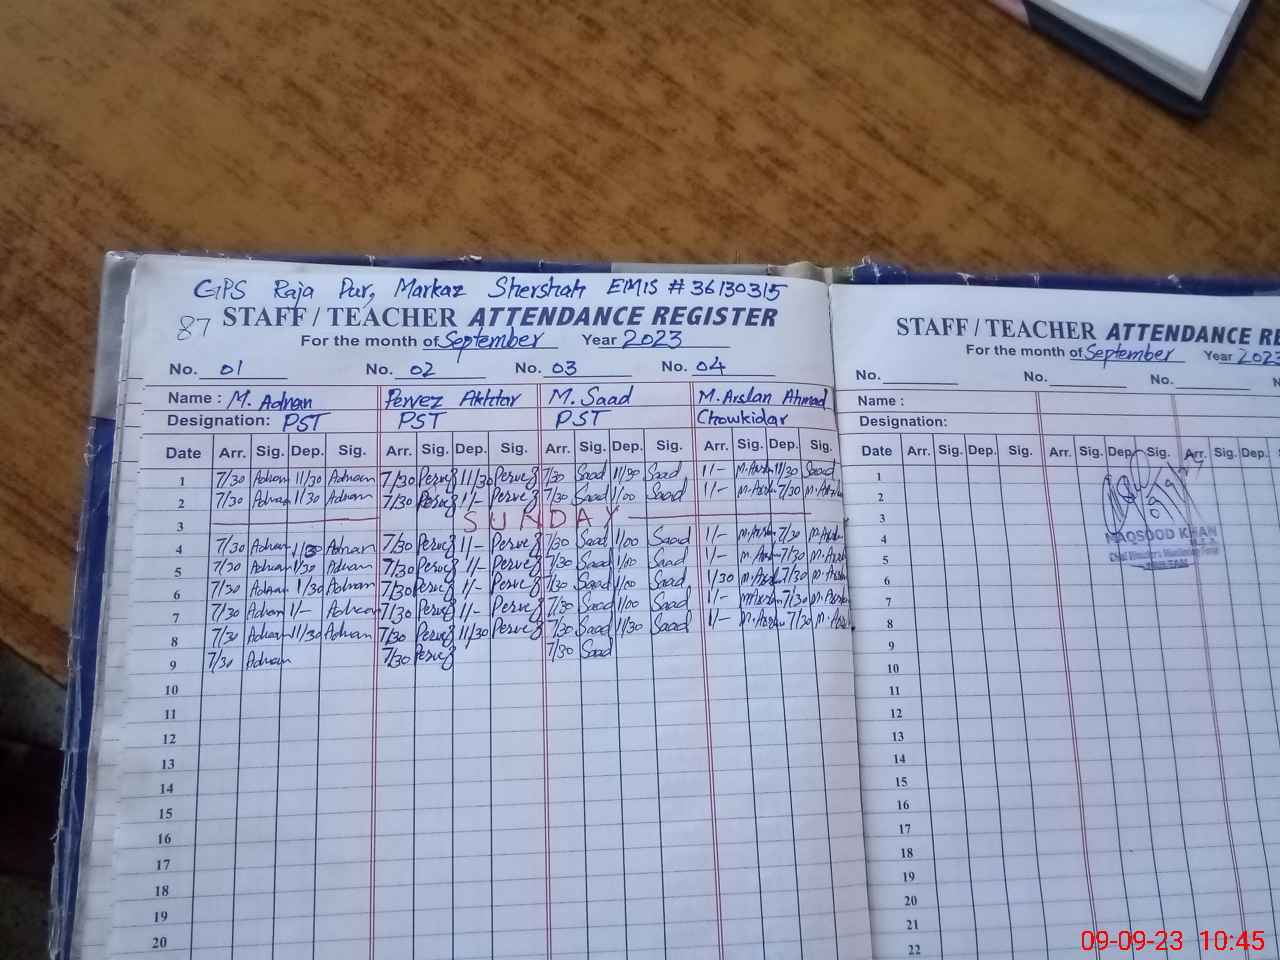 GPS Raja Pur, Markaz Shershah EMIS # 36130315
87 STAFF / TEACHER ATTENDANCE REGISTER
For the month of September Year 2023
No. 01 No. 02 No. 03 No. 04
Name : M. Adnan Pervez Akhtar M. Saad M. Arslan Ahmad
Designation: PST PST PST Chowkidar
Date Arr. Sig. Dep. Sig. Arr. Sig. Dep. Sig. Arr. Sig. Dep. Sig. Arr. Sig. Dep. Sig.
1 7/30 Adnan 11/30 Adnan 7/30 Pervez 11/30 Pervez 7/30 Saad 11/30 Saad 1/- M.Arslan 11/30 Saad
2 7/30 Adnan 1/30 Adnan 7/30 Pervez 1/- Pervez 7/30 Saad 1/00 Saad 1/- M.Arslan 7/30 M.Arslan
3 SUNDAY
4 7/30 Adnan 1/30 Adnan 7/30 Pervez 1/- Pervez 7/30 Saad 1/00 Saad 1/- M.Arslan 7/30 M.Arslan
5 7/30 Adnan 1/30 Adnan 7/30 Pervez 1/- Pervez 7/30 Saad 1/00 Saad 1/- M.Arslan 7/30 M.Arslan
6 7/30 Adnan 1/30 Adnan 7/30 Pervez 1/- Pervez 7/30 Saad 1/00 Saad 1/30 M.Arslan 7/30 M.Arslan
7 7/30 Adnan 1/- Adnan 7/30 Pervez 1/- Pervez 7/30 Saad 1/00 Saad 1/- M.Arslan 7/30 M.Arslan
8 7/30 Adnan 11/30 Adnan 7/30 Pervez 11/30 Pervez 7/30 Saad 11/30 Saad 1/- M.Arslan 7/30 M.Arslan
9 7/30 Adnan 7/30 Pervez 7/30 Saad
10
11
12
13
14
15
16
17
18
19
20
STAFF / TEACHER ATTENDANCE RE
For the month of September Year 2023
No. No. No. N
Name :
Designation:
Date Arr. Sig. Dep. Sig. Arr. Sig. Dep. Sig. Arr. Sig. Dep. S
1
2
3
4
5
6
7
8
9
10
11
12
13
14
15
16
17
18
19
20
21
22
MAQSOOD KHAN
09-09-23 10:45